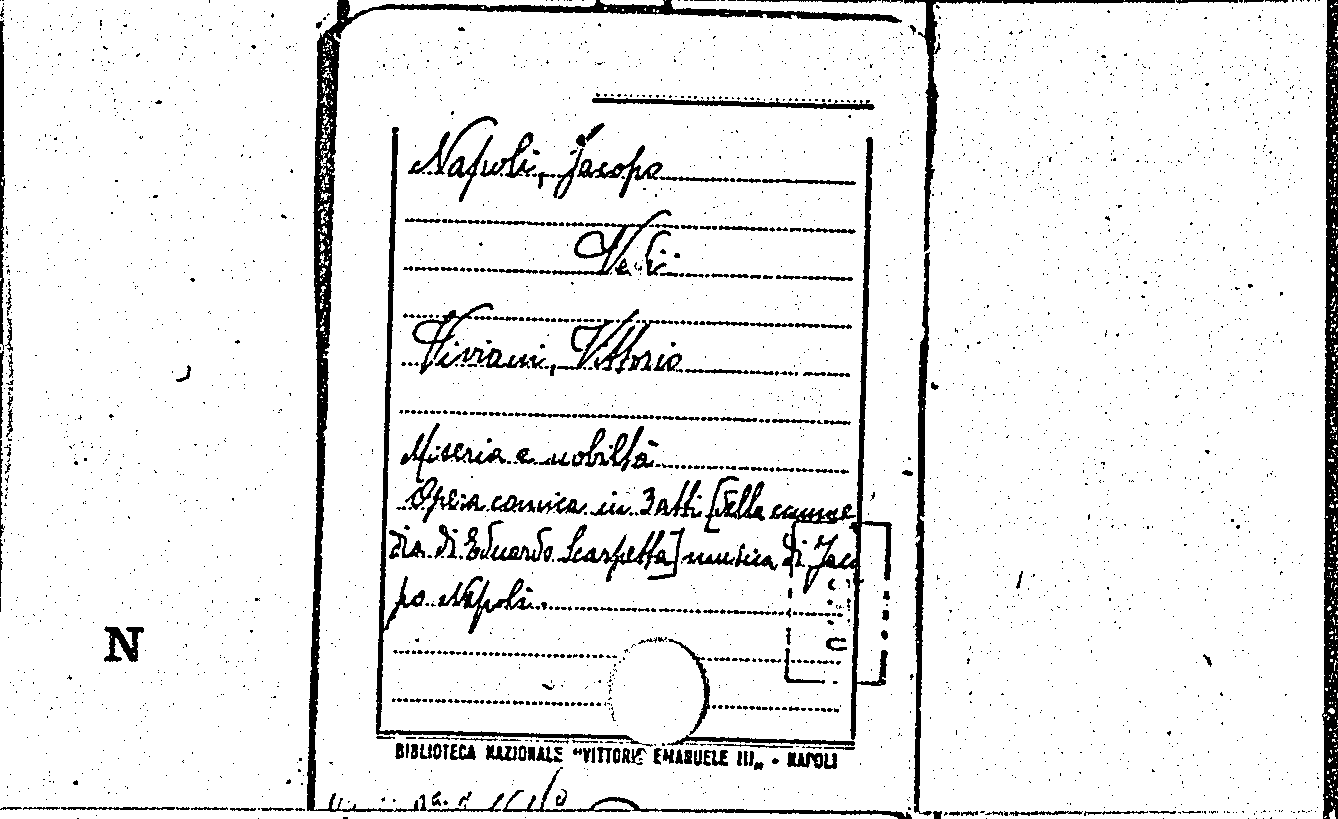 Napoli, Jacopo
Vedi
Viviani, Vittorio
Miseria e nobiltà
Opera comica in 3 atti [della comme
dia di Eduardo Scarpetta] musica di Jaco
po Napoli.
N
BIBLIOTECA NAZIONALE "VITTORIO EMANUELE III„ - NAPOLI